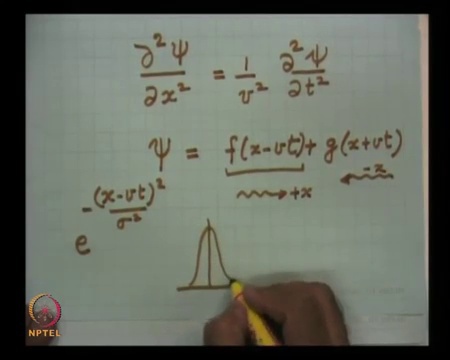 ∂²Ψ/∂x² = 1/v² ∂²Ψ/∂t²
Ψ = f(x-vt) + g(x+vt)
→ +x ← -x
e^(-(x-vt)²/σ²)
NPTEL